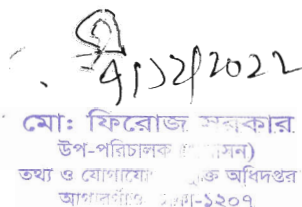 ৭/১২/২০২২
মো: ফিরোজ সরকার
উপ-পরিচালক (প্রশাসন)
তথ্য ও যোগাযোগ অধিদপ্তর
আগারগাঁও -১২০৭